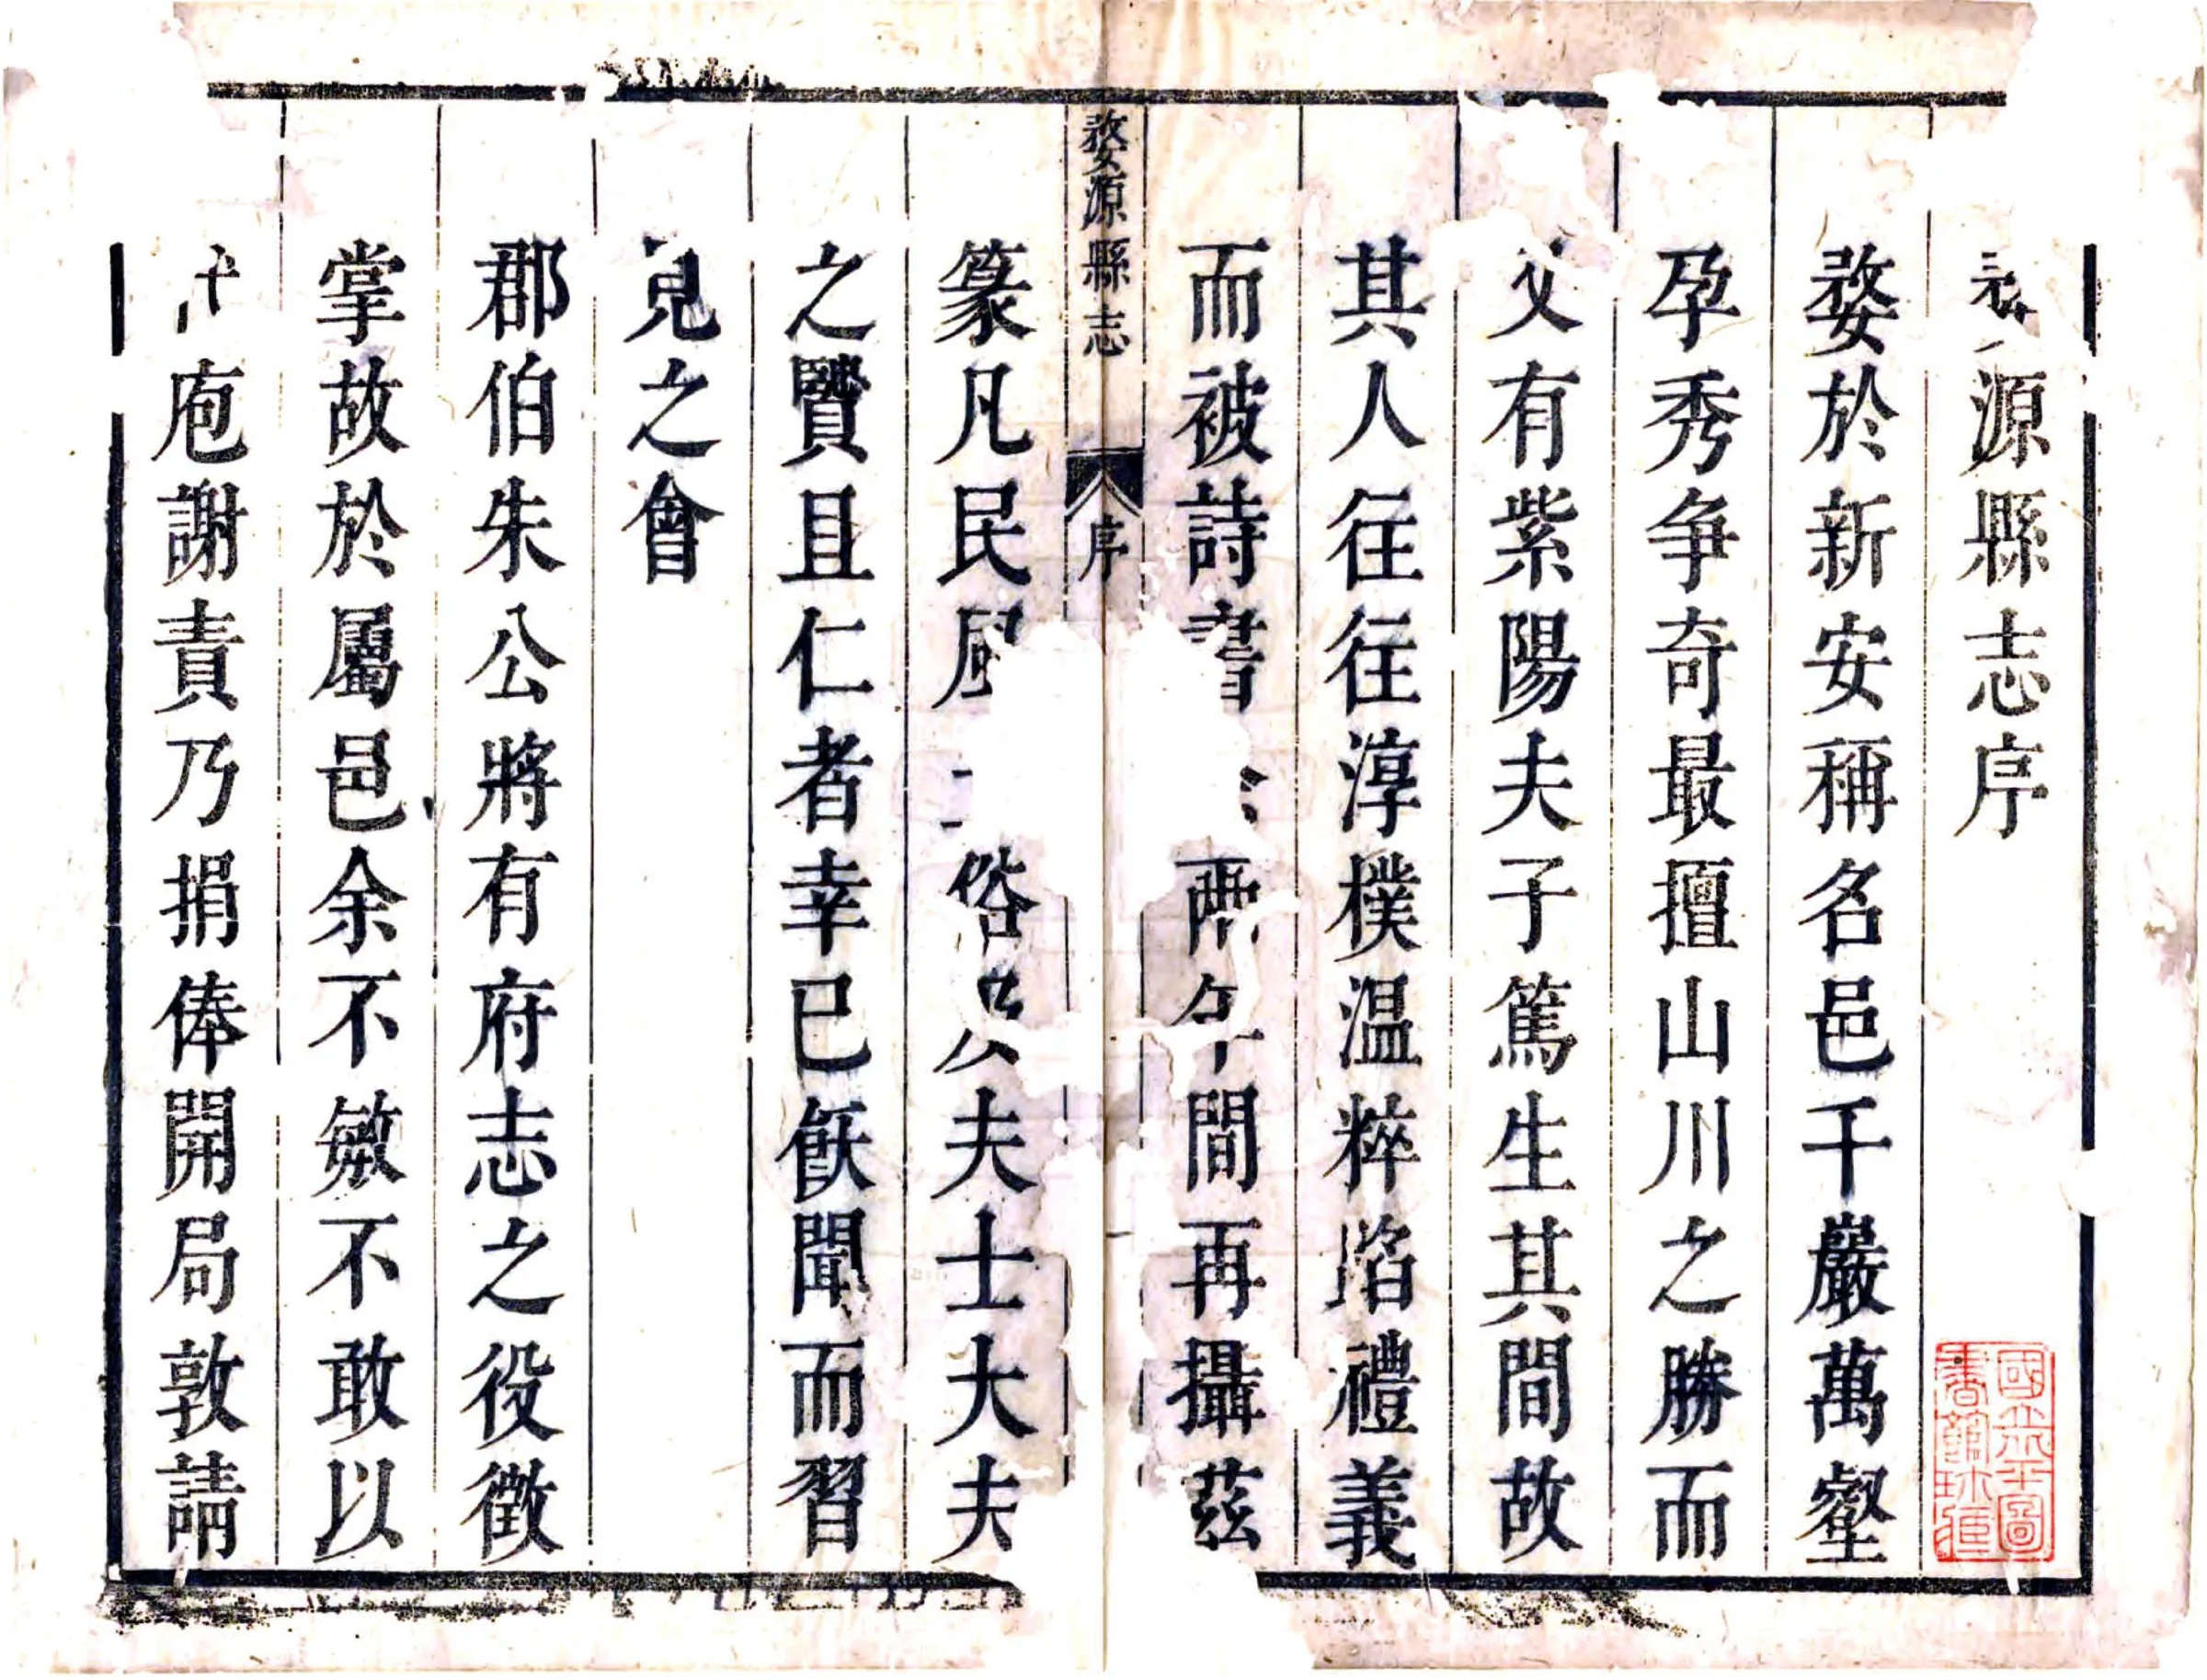 源縣志序
婺於新安稱名邑千巖萬壑
孕秀争奇最擅山川之勝而
又有紫陽夫子篤生其間故
其人往往淳樸温粹蹈禮義
而被詩書 兩午間再攝茲
婺源縣志 序
篆凡民風土俗與夫士大夫
之賢且仁者幸已飫聞而習
見之會
郡伯朱公將有府志之役徵
掌故於屬邑余不敏不敢以
庖謝責乃捐俸開局敦請